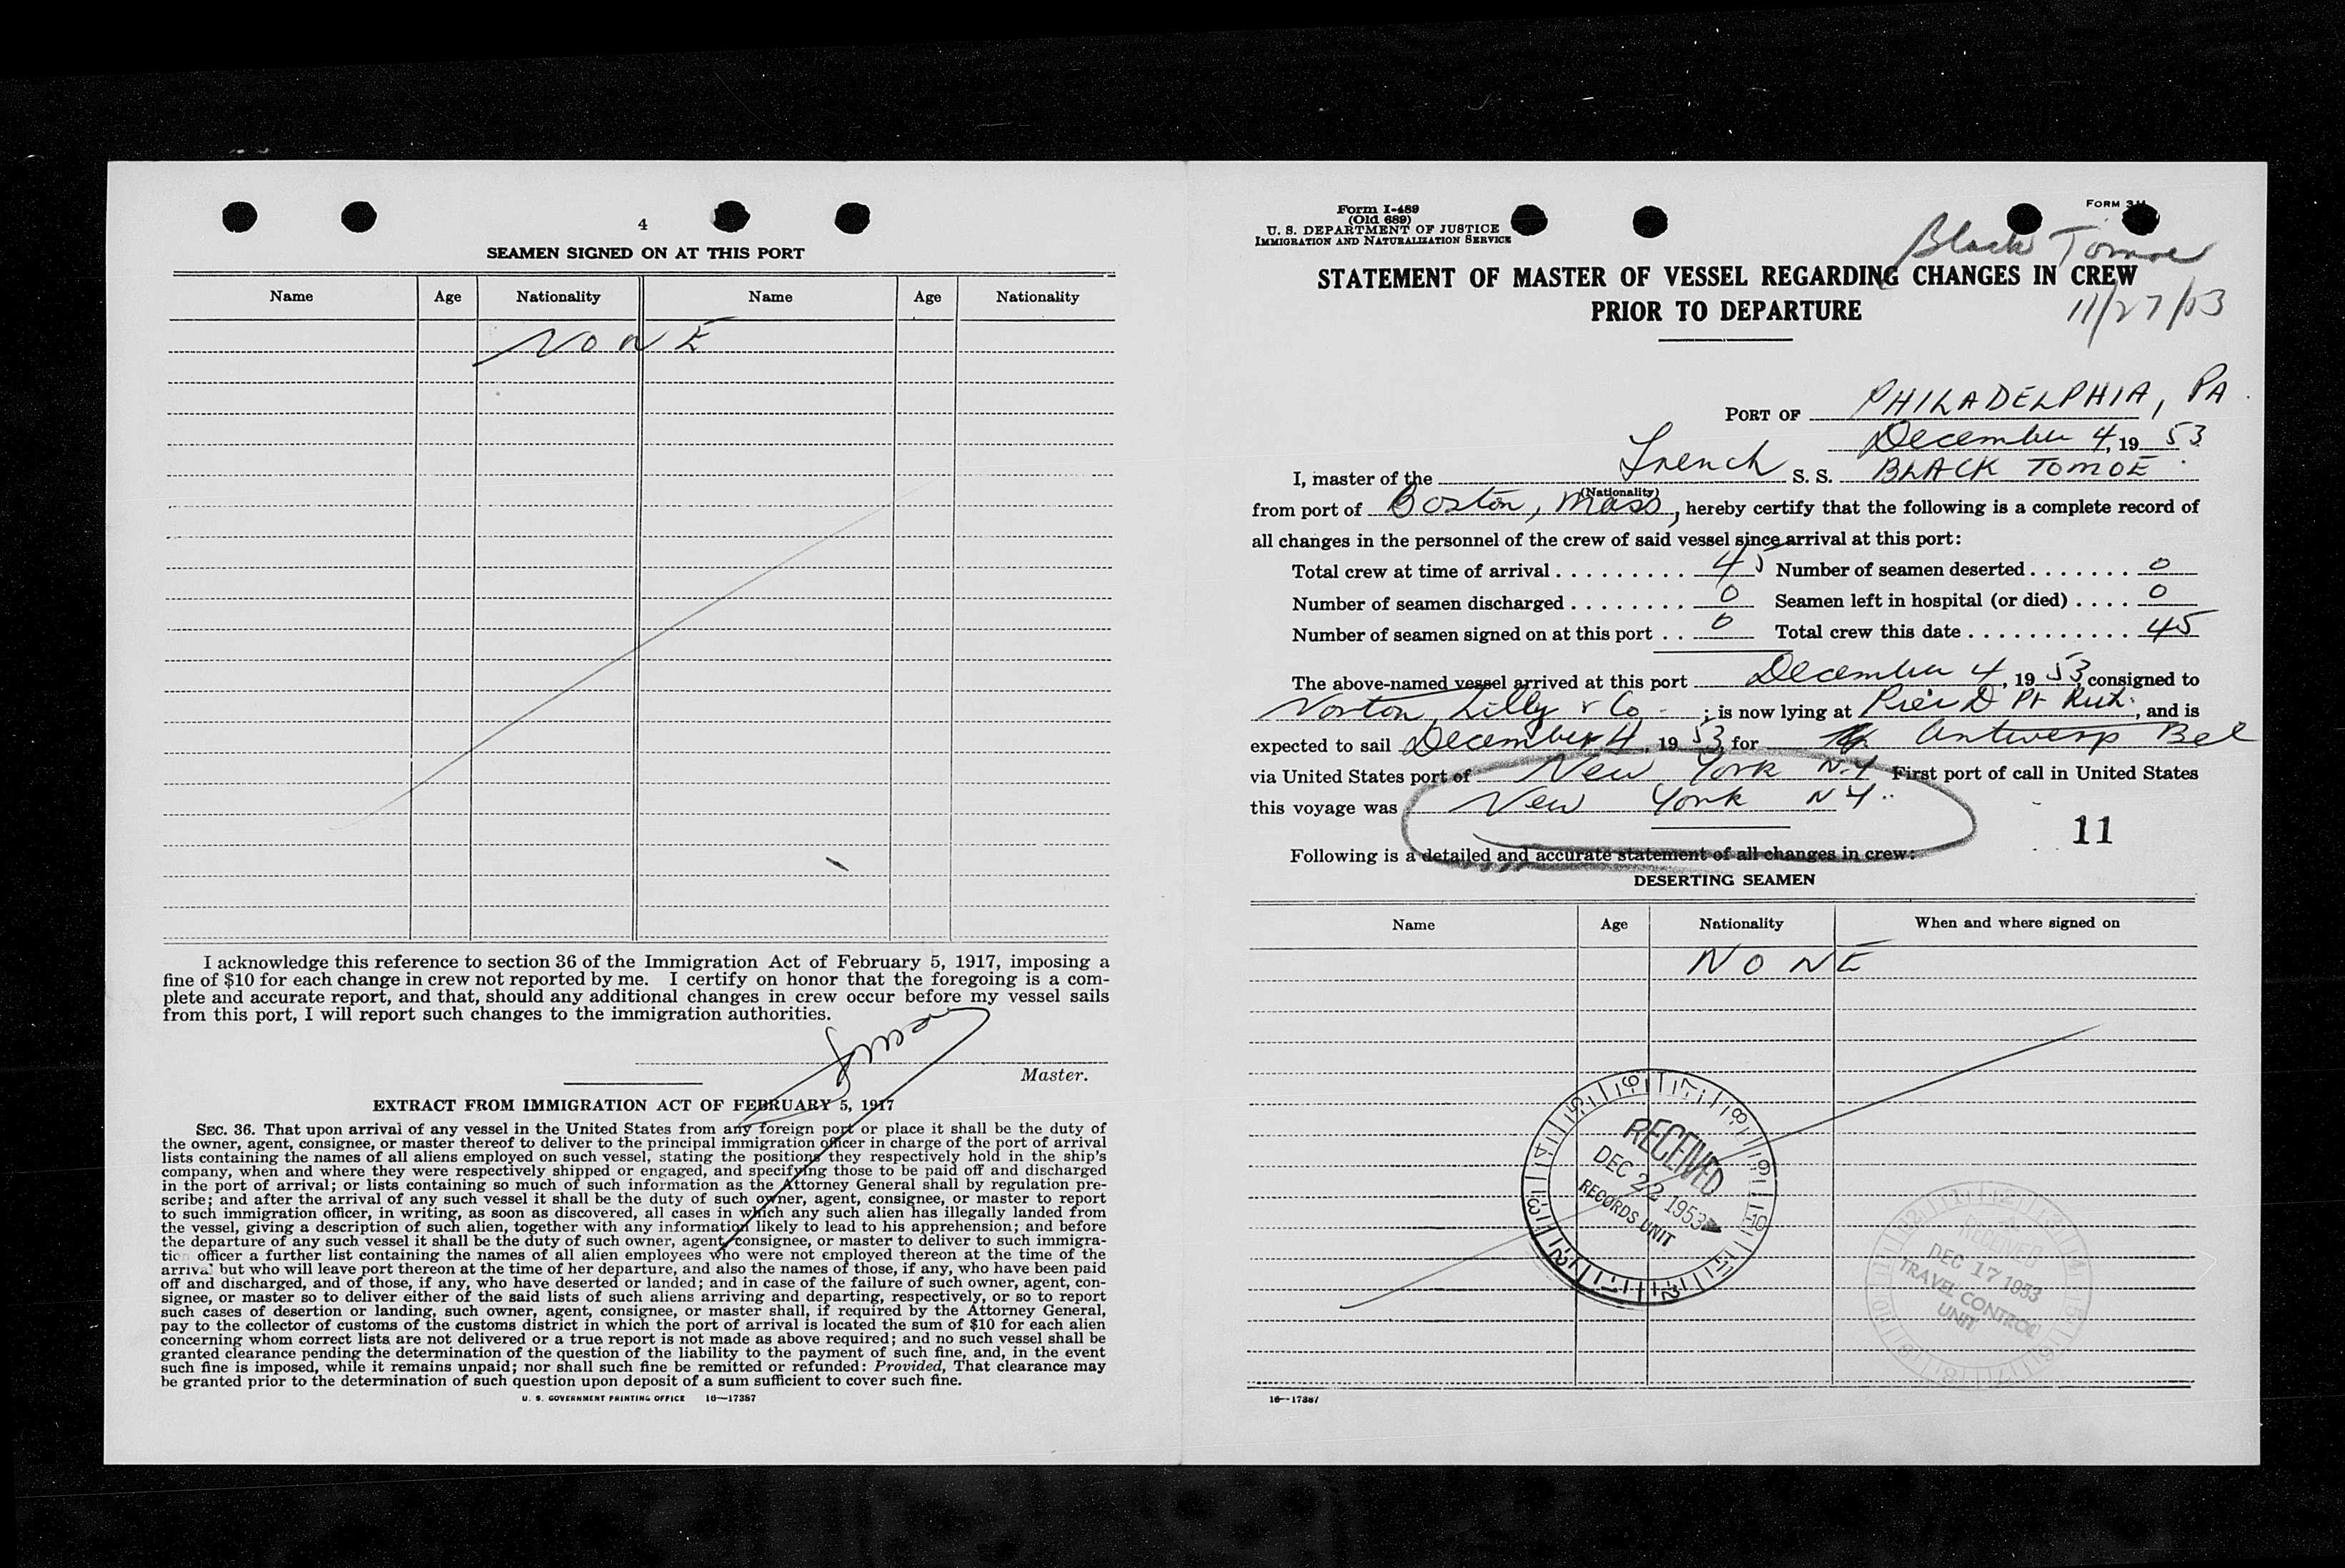 4
SEAMEN SIGNED ON AT THIS PORT
Name Age Nationality Name Age Nationality
NONE
I acknowledge this reference to section 36 of the Immigration Act of February 5, 1917, imposing a
fine of $10 for each change in crew not reported by me. I certify on honor that the foregoing is a com-
plete and accurate report, and that, should any additional changes in crew occur before my vessel sails
from this port, I will report such changes to the immigration authorities.
Master.
EXTRACT FROM IMMIGRATION ACT OF FEBRUARY 5, 1917
SEC. 36. That upon arrival of any vessel in the United States from any foreign port or place it shall be the duty of
the owner, agent, consignee, or master thereof to deliver to the principal immigration officer in charge of the port of arrival
lists containing the names of all aliens employed on such vessel, stating the positions they respectively hold in the ship's
company, when and where they were respectively shipped or engaged, and specifying those to be paid off and discharged
in the port of arrival; or lists containing so much of such information as the Attorney General shall by regulation pre-
scribe; and after the arrival of any such vessel it shall be the duty of such owner, agent, consignee, or master to report
to such immigration officer, in writing, as soon as discovered, all cases in which any such alien has illegally landed from
the vessel, giving a description of such alien, together with any information likely to lead to his apprehension; and before
the departure of any such vessel it shall be the duty of such owner, agent, consignee, or master to deliver to such immigra-
tion officer a further list containing the names of all alien employees who were not employed thereon at the time of the
arrival but who will leave port thereon at the time of her departure, and also the names of those, if any, who have been paid
off and discharged, and of those, if any, who have deserted or landed; and in case of the failure of such owner, agent, con-
signee, or master so to deliver either of the said lists of such aliens arriving and departing, respectively, or so to report
such cases of desertion or landing, such owner, agent, consignee, or master shall, if required by the Attorney General,
pay to the collector of customs of the customs district in which the port of arrival is located the sum of $10 for each alien
concerning whom correct lists are not delivered or a true report is not made as above required; and no such vessel shall be
granted clearance pending the determination of the question of the liability to the payment of such fine, and, in the event
such fine is imposed, while it remains unpaid; nor shall such fine be remitted or refunded: Provided, That clearance may
be granted prior to the determination of such question upon deposit of a sum sufficient to cover such fine.
U. S. GOVERNMENT PRINTING OFFICE 16—17387
Form I-489
(Old 689)
U. S. DEPARTMENT OF JUSTICE
IMMIGRATION AND NATURALIZATION SERVICE
FORM
Black Tomoe
STATEMENT OF MASTER OF VESSEL REGARDING CHANGES IN CREW
PRIOR TO DEPARTURE
11/27/53
PORT OF PHILADELPHIA, PA
December 4, 19 53
I, master of the French S. S. BLACK TOMOE
(Nationality)
from port of Boston, Mass, hereby certify that the following is a complete record of
all changes in the personnel of the crew of said vessel since arrival at this port:
Total crew at time of arrival 45 Number of seamen deserted 0
Number of seamen discharged 0 Seamen left in hospital (or died) 0
Number of seamen signed on at this port 0 Total crew this date 45
The above-named vessel arrived at this port December 4, 19 53, consigned to
Norton, Lilly & Co ; is now lying at Pier D Pt Rich., and is
expected to sail December 4, 19 53, for Antwerp Bel
via United States port of New York N.Y. First port of call in United States
this voyage was New York NY.
11
Following is a detailed and accurate statement of all changes in crew:
DESERTING SEAMEN
Name Age Nationality When and where signed on
NONE
RECEIVED
DEC 22 1953
RECORDS UNIT
RECEIVED
DEC 17 1953
TRAVEL CONTROL
UNIT
16—17387